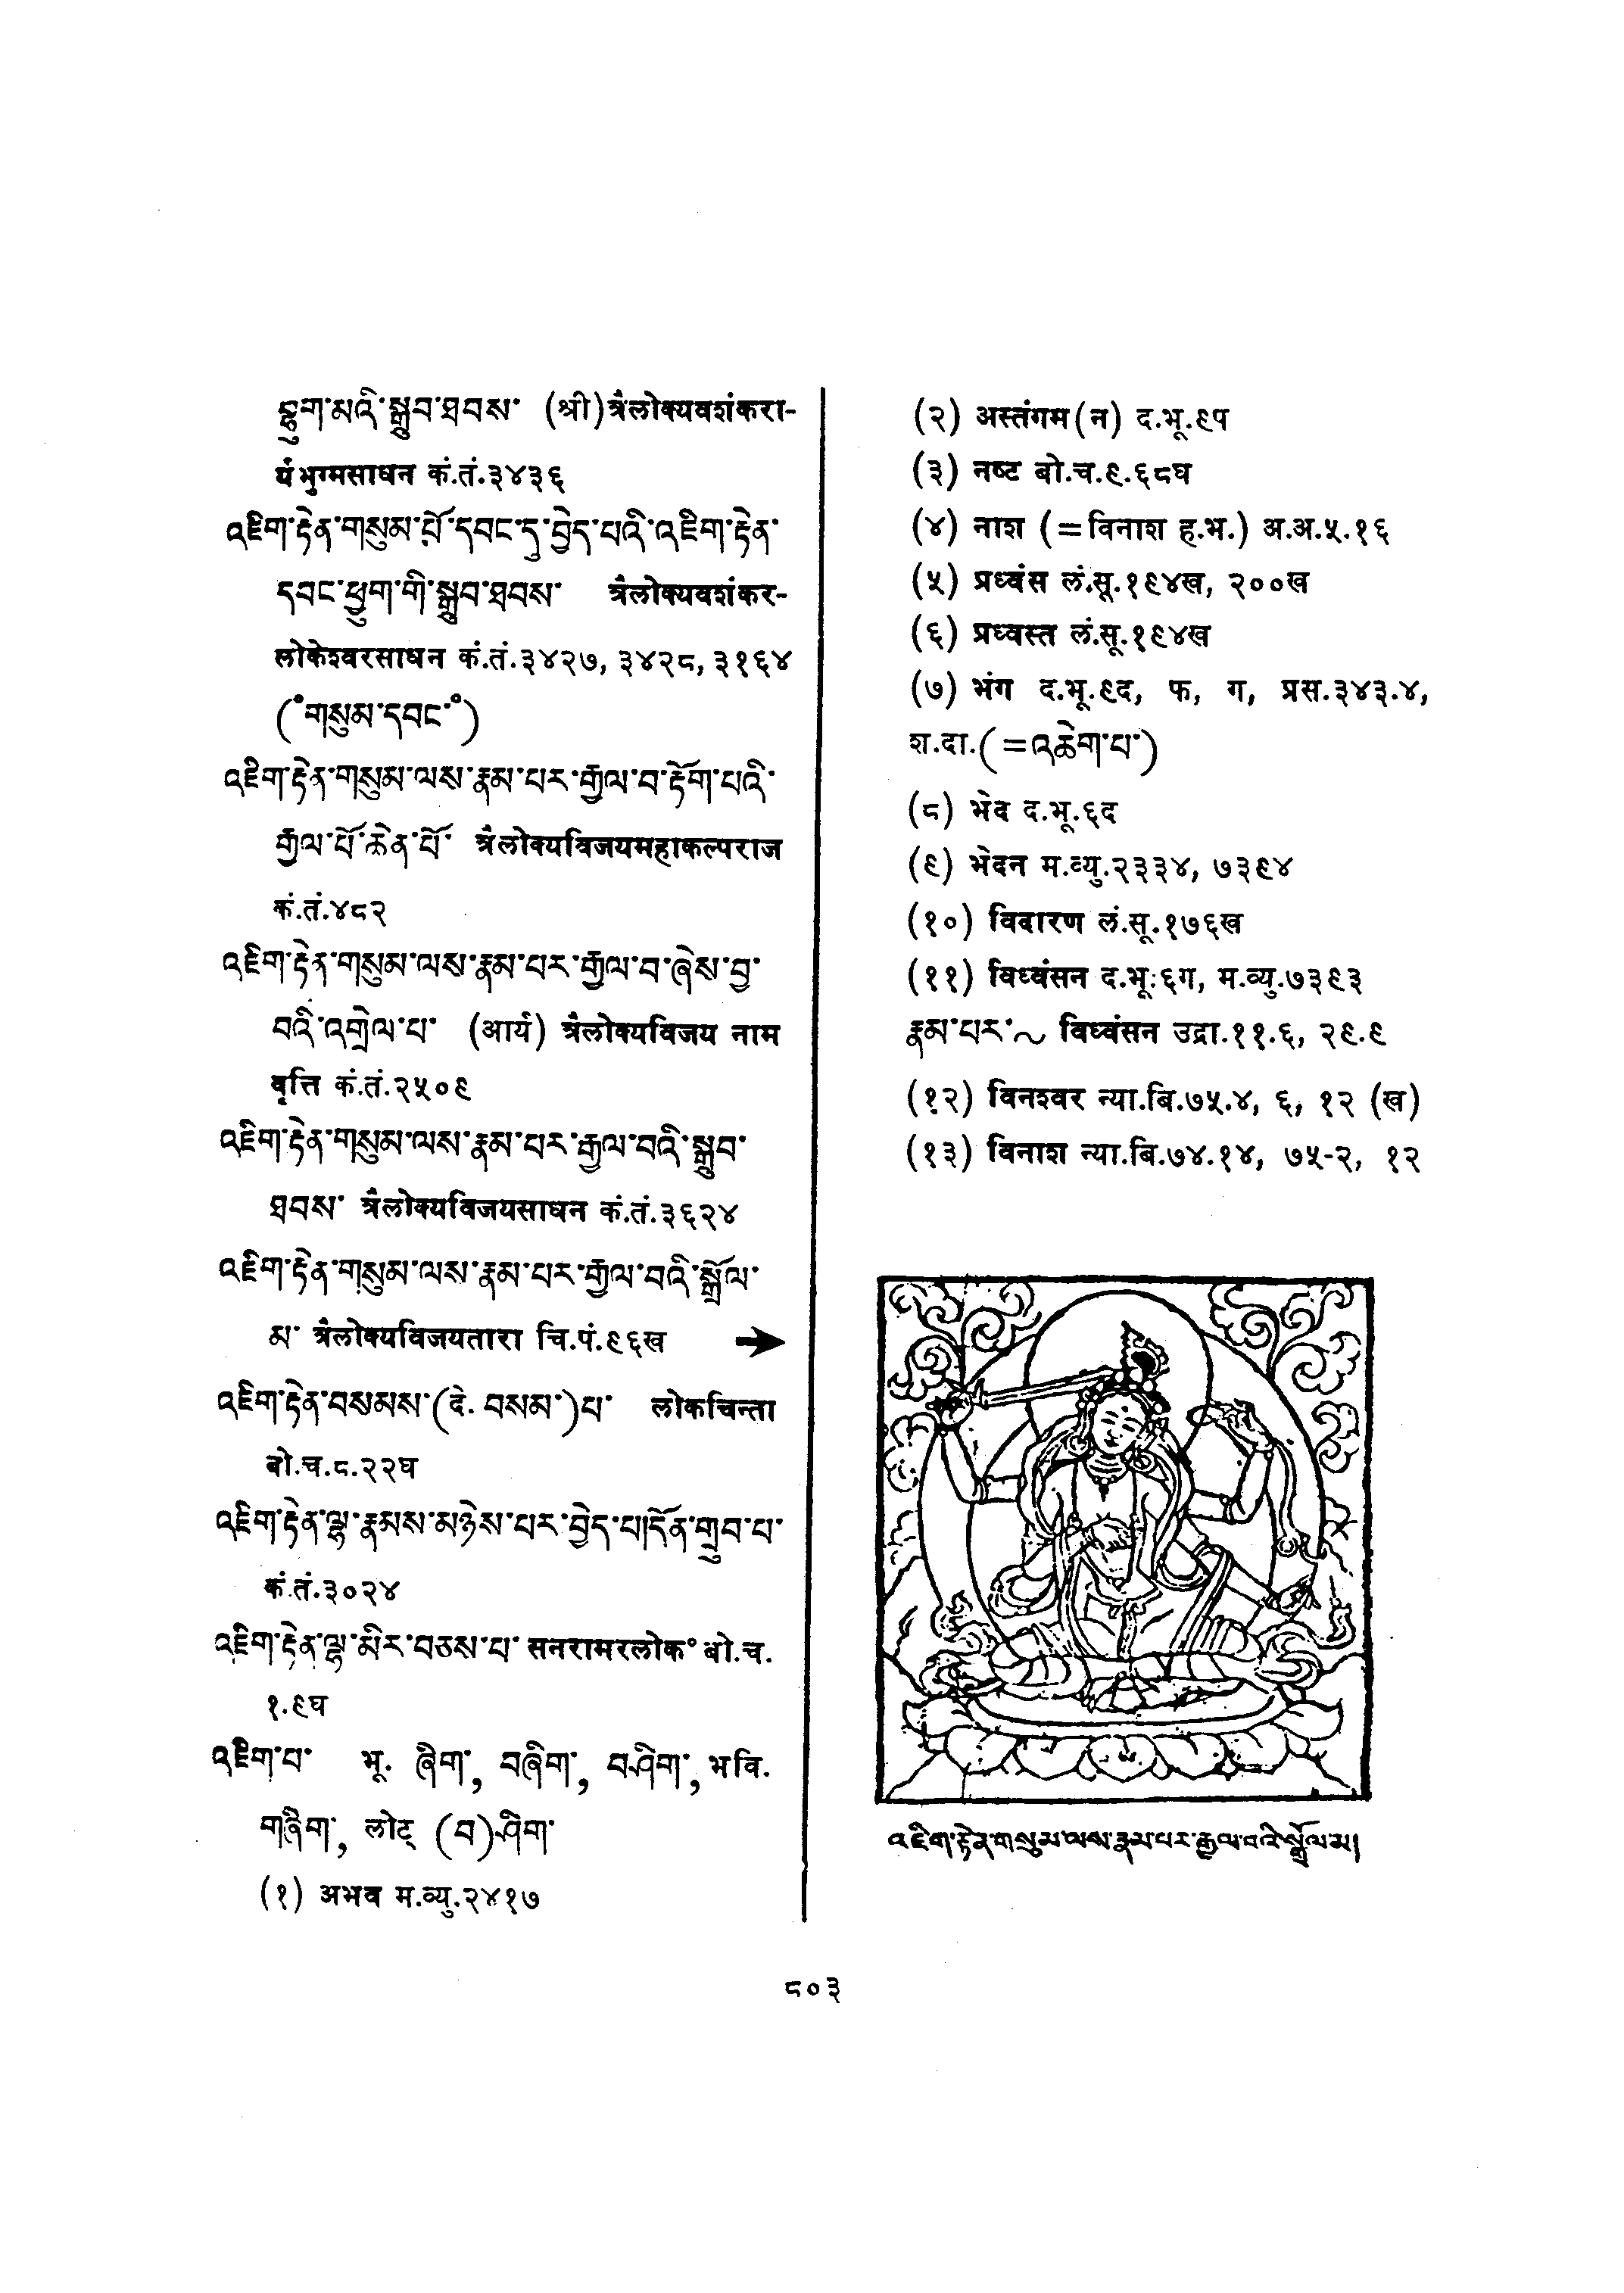 བྷུག་མའི་སྒྲུབ་ཐབས་ (श्री) त्रैलोक्यवशंकरा-
र्यभुग्मसाधन कं.तं.३४३६
འཇིག་རྟེན་གསུམ་པོ་དབང་དུ་བྱེད་པའི་འཇིག་རྟེན་
དབང་ཕྱུག་གི་སྒྲུབ་ཐབས་ त्रैलोक्यवशंकर-
लोकेश्वरसाधन कं.तं.३४२७, ३४२८, ३१६४
(°གསུམ་དབང་°)
འཇིག་རྟེན་གསུམ་ལས་རྣམ་པར་རྒྱལ་བ་རྟོག་པའི་
རྒྱལ་པོ་ཆེན་པོ་ त्रैलोक्यविजयमहाकल्पराज
कं.तं.४८२
འཇིག་རྟེན་གསུམ་ལས་རྣམ་པར་རྒྱལ་བ་ཞེས་བྱ་
བའི་འགྲེལ་པ་ (आर्य) त्रैलोक्यविजय नाम
वृत्ति कं.तं.२५०९
འཇིག་རྟེན་གསུམ་ལས་རྣམ་པར་རྒྱལ་བའི་སྒྲུབ་
ཐབས་ त्रैलोक्यविजयसाधन कं.तं.३६२४
འཇིག་རྟེན་གསུམ་ལས་རྣམ་པར་རྒྱལ་བའི་སྒྲོལ་
མ་ त्रैलोक्यविजयतारा चि.पं.९६ख ➔
འཇིག་རྟེན་བསམས་(दे. བསམ་)པ་ लोकचिन्ता
बो.च.८.२२घ
འཇིག་རྟེན་ལྷ་རྣམས་མཉེས་པར་བྱེད་པ།དོན་གྲུབ་པ་
कं.तं.३०२४
འཇིག་རྟེན་ལྷ་མིར་བཅས་པ་ सनरामरलोक° बो.च.
१.९घ
འཇིག་པ་ भू. ཞིག་, བཞིག་, བཤིག་, भवि.
གཞིག་, लोट् (བ)ཤིག་
(१) अभव म.व्यु.२४१७
(२) अस्तंगम(न) द.भू.९प
(३) नष्ट बो.च.९.६८घ
(४) नाश (=विनाश ह.भ.) अ.अ.५.१६
(५) प्रध्वंस लं.सू.१९४ख, २००ख
(६) प्रध्वस्त लं.सू.१९४ख
(७) भंग द.भू.९द, फ, ग, प्रस.३४३.४,
श.दा.(=འཆེག་པ་)
(८) भेद द.भू.६द
(९) भेदन म.व्यु.२३३४, ७३९४
(१०) विदारण लं.सू.१७६ख
(११) विध्वंसन द.भू.६ग, म.व्यु.७३९३
རྣམ་པར་~ विध्वंसन उद्रा.११.६, २९.९
(१२) विनश्वर न्या.बि.७५.४, ६, १२ (ख)
(१३) विनाश न्या.बि.७४.१४, ७५-२, १२
འཇིག་རྟེན་གསུམ་ལས་རྣམ་པར་རྒྱལ་བའི་སྒྲོལ་མ།
८०३